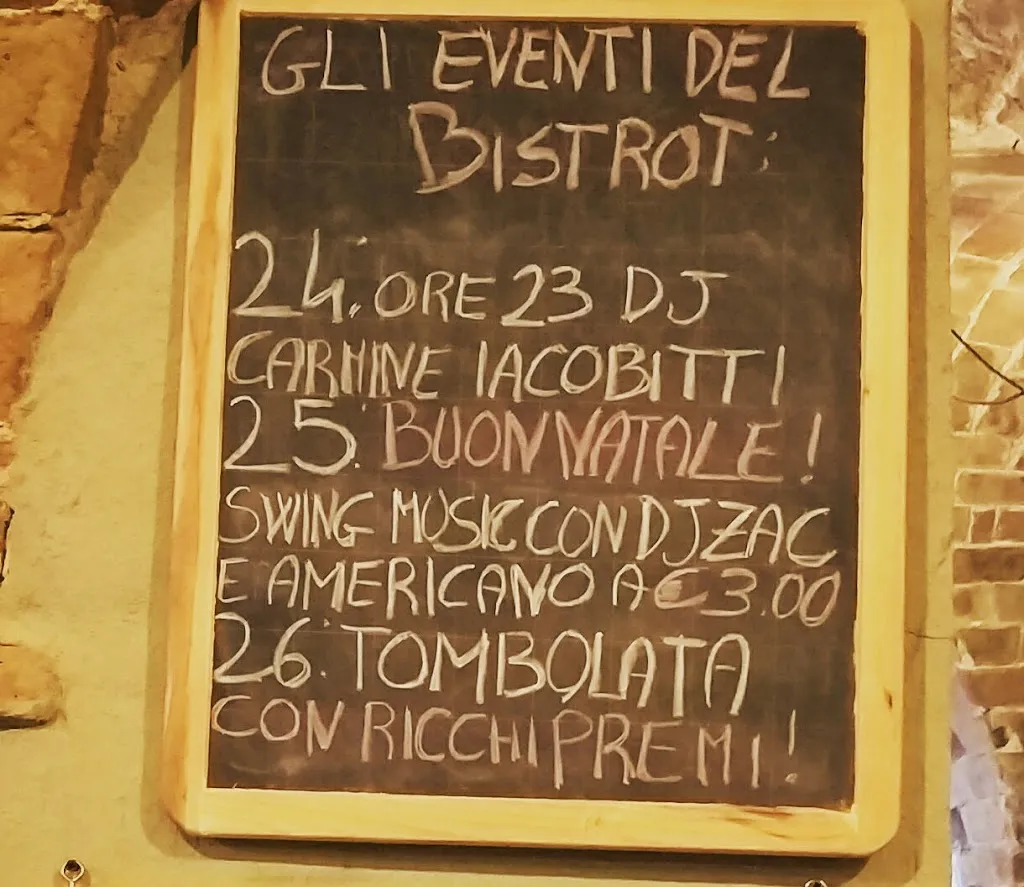 GLI EVENTI DEL
BISTROT:
24: ORE 23 DJ
CARMINE IACOBITTI
25: BUON NATALE!
SWING MUSIC CON DJ ZAC
E AMERICANO A € 3.00
26: TOMBOLATA
CON RICCHI PREMI!